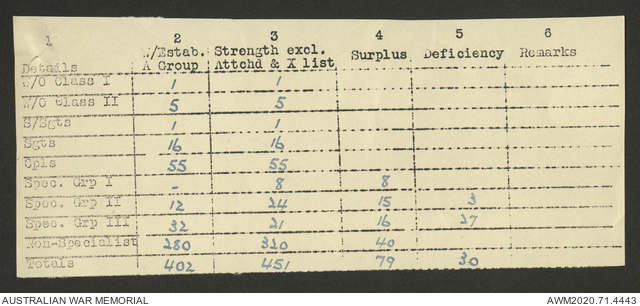 1 2 3 4 5 6
W/Estab. Strength excl. Surplus Deficiency Remarks
Details A Group Attchd & X list
W/O Class I 1 1
W/O Class II 5 5
S/Sgts 1 1
Sgts 16 16
Cpls 55 55
Spec. Grp I - 8 8
Spec. Grp II 12 24 15 3
Spec. Grp III 32 21 16 27
Non-Specialist 280 320 40
Totals 402 451 79 30
AUSTRALIAN WAR MEMORIAL AWM2020.71.4443